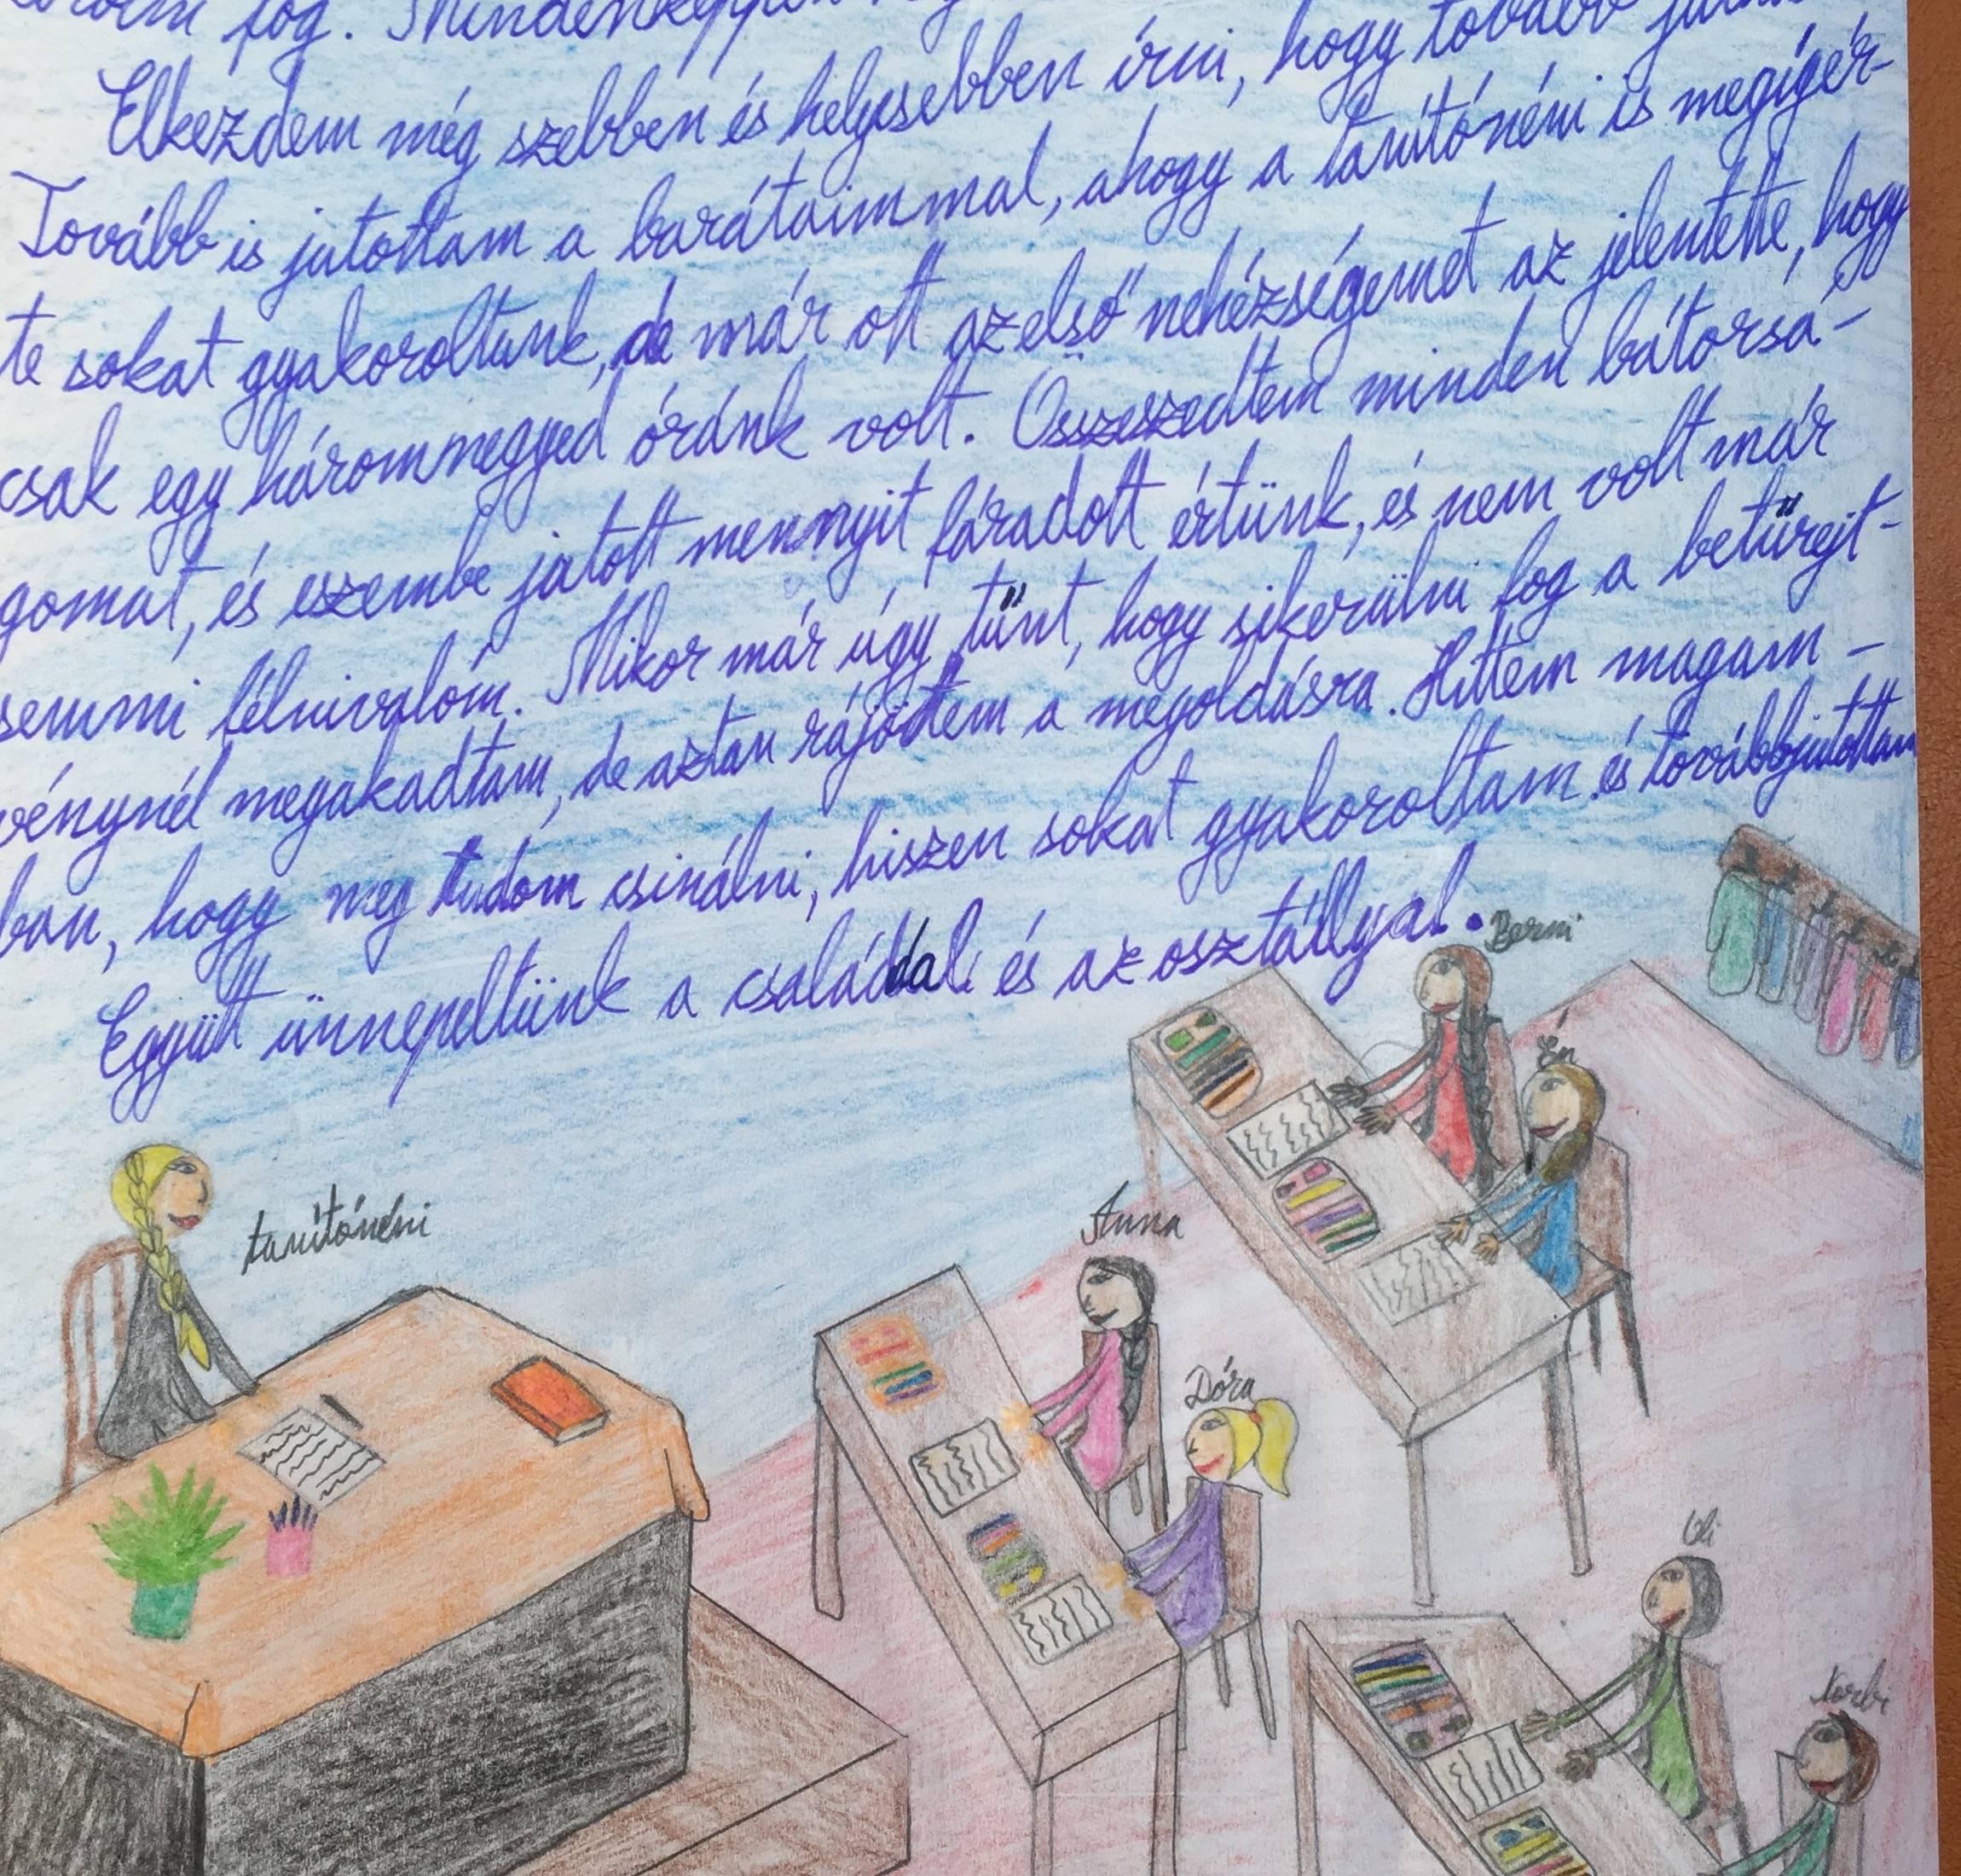 fog. Mindenképpen
Elkezdem még szebben és helyesebben írni, hogy tovább
Tovább is jutottam a barátaimmal, ahogy a tanítónéni is megígér-
te sokat gyakoroltunk, de már ott az első nehézségemet az jelentette, hogy
csak egy háromnegyed óránk volt. Összeszedtem minden bátorsá-
gomat, és eszembe jutott mennyit fáradott értünk, és nem volt már
semmi félnivalóm. Mikor már úgy tűnt, hogy sikerülni fog a betűrejt-
vénynél megakadtam, de aztan rájöttem a megoldásra. Hittem magam-
ban, hogy meg tudom csinálni, hiszen sokat gyakoroltam és továbbjutottam
Együtt ünnepeltünk a családdal és az osztállyal.
Berni
Én
tanítónéni
Anna
Dóra
Oli
Norbi